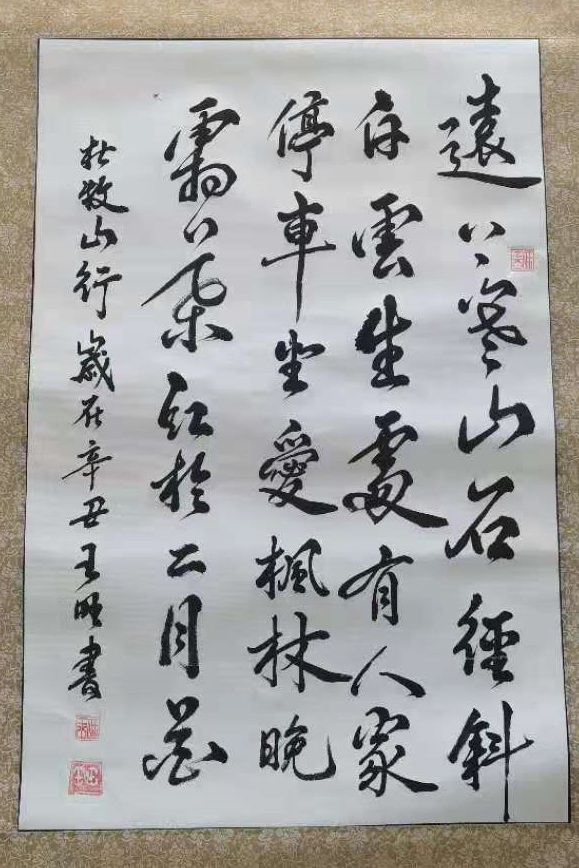 遠上寒山石徑斜
白雲生處有人家
停車坐愛楓林晚
霜葉紅於二月花
杜牧山行 歲在辛丑王旺書